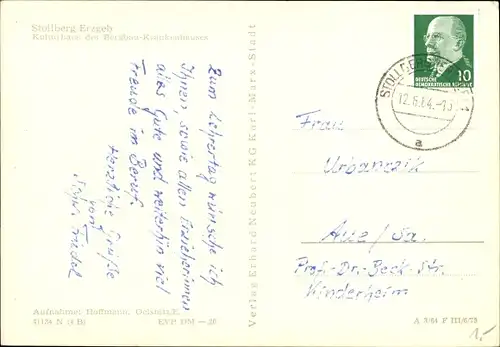 Stollberg Erzgeb
Kulturhaus des Bergbau-Krankenhauses
Zum Lehrertag wünsche ich
Ihnen, sowie allen Erzieherinnen
alles Gute und weiterhin viel
Freude im Beruf.
Herzliche Grüße
von
Friedel
Verlag Erhard Neubert KG Karl-Marx-Stadt
DEUTSCHE
DEMOKRATISCHE REPUBLIK
10
12.6.64.-15
a
Frau
Urbanczik
Aue/Sa.
Prof.-Dr.-Beck-Str.
Kinderheim
Aufnahme: Hoffmann, Oelsnitz/E.
EVP DM -,20
A 3/64 F III/6/73
1,-